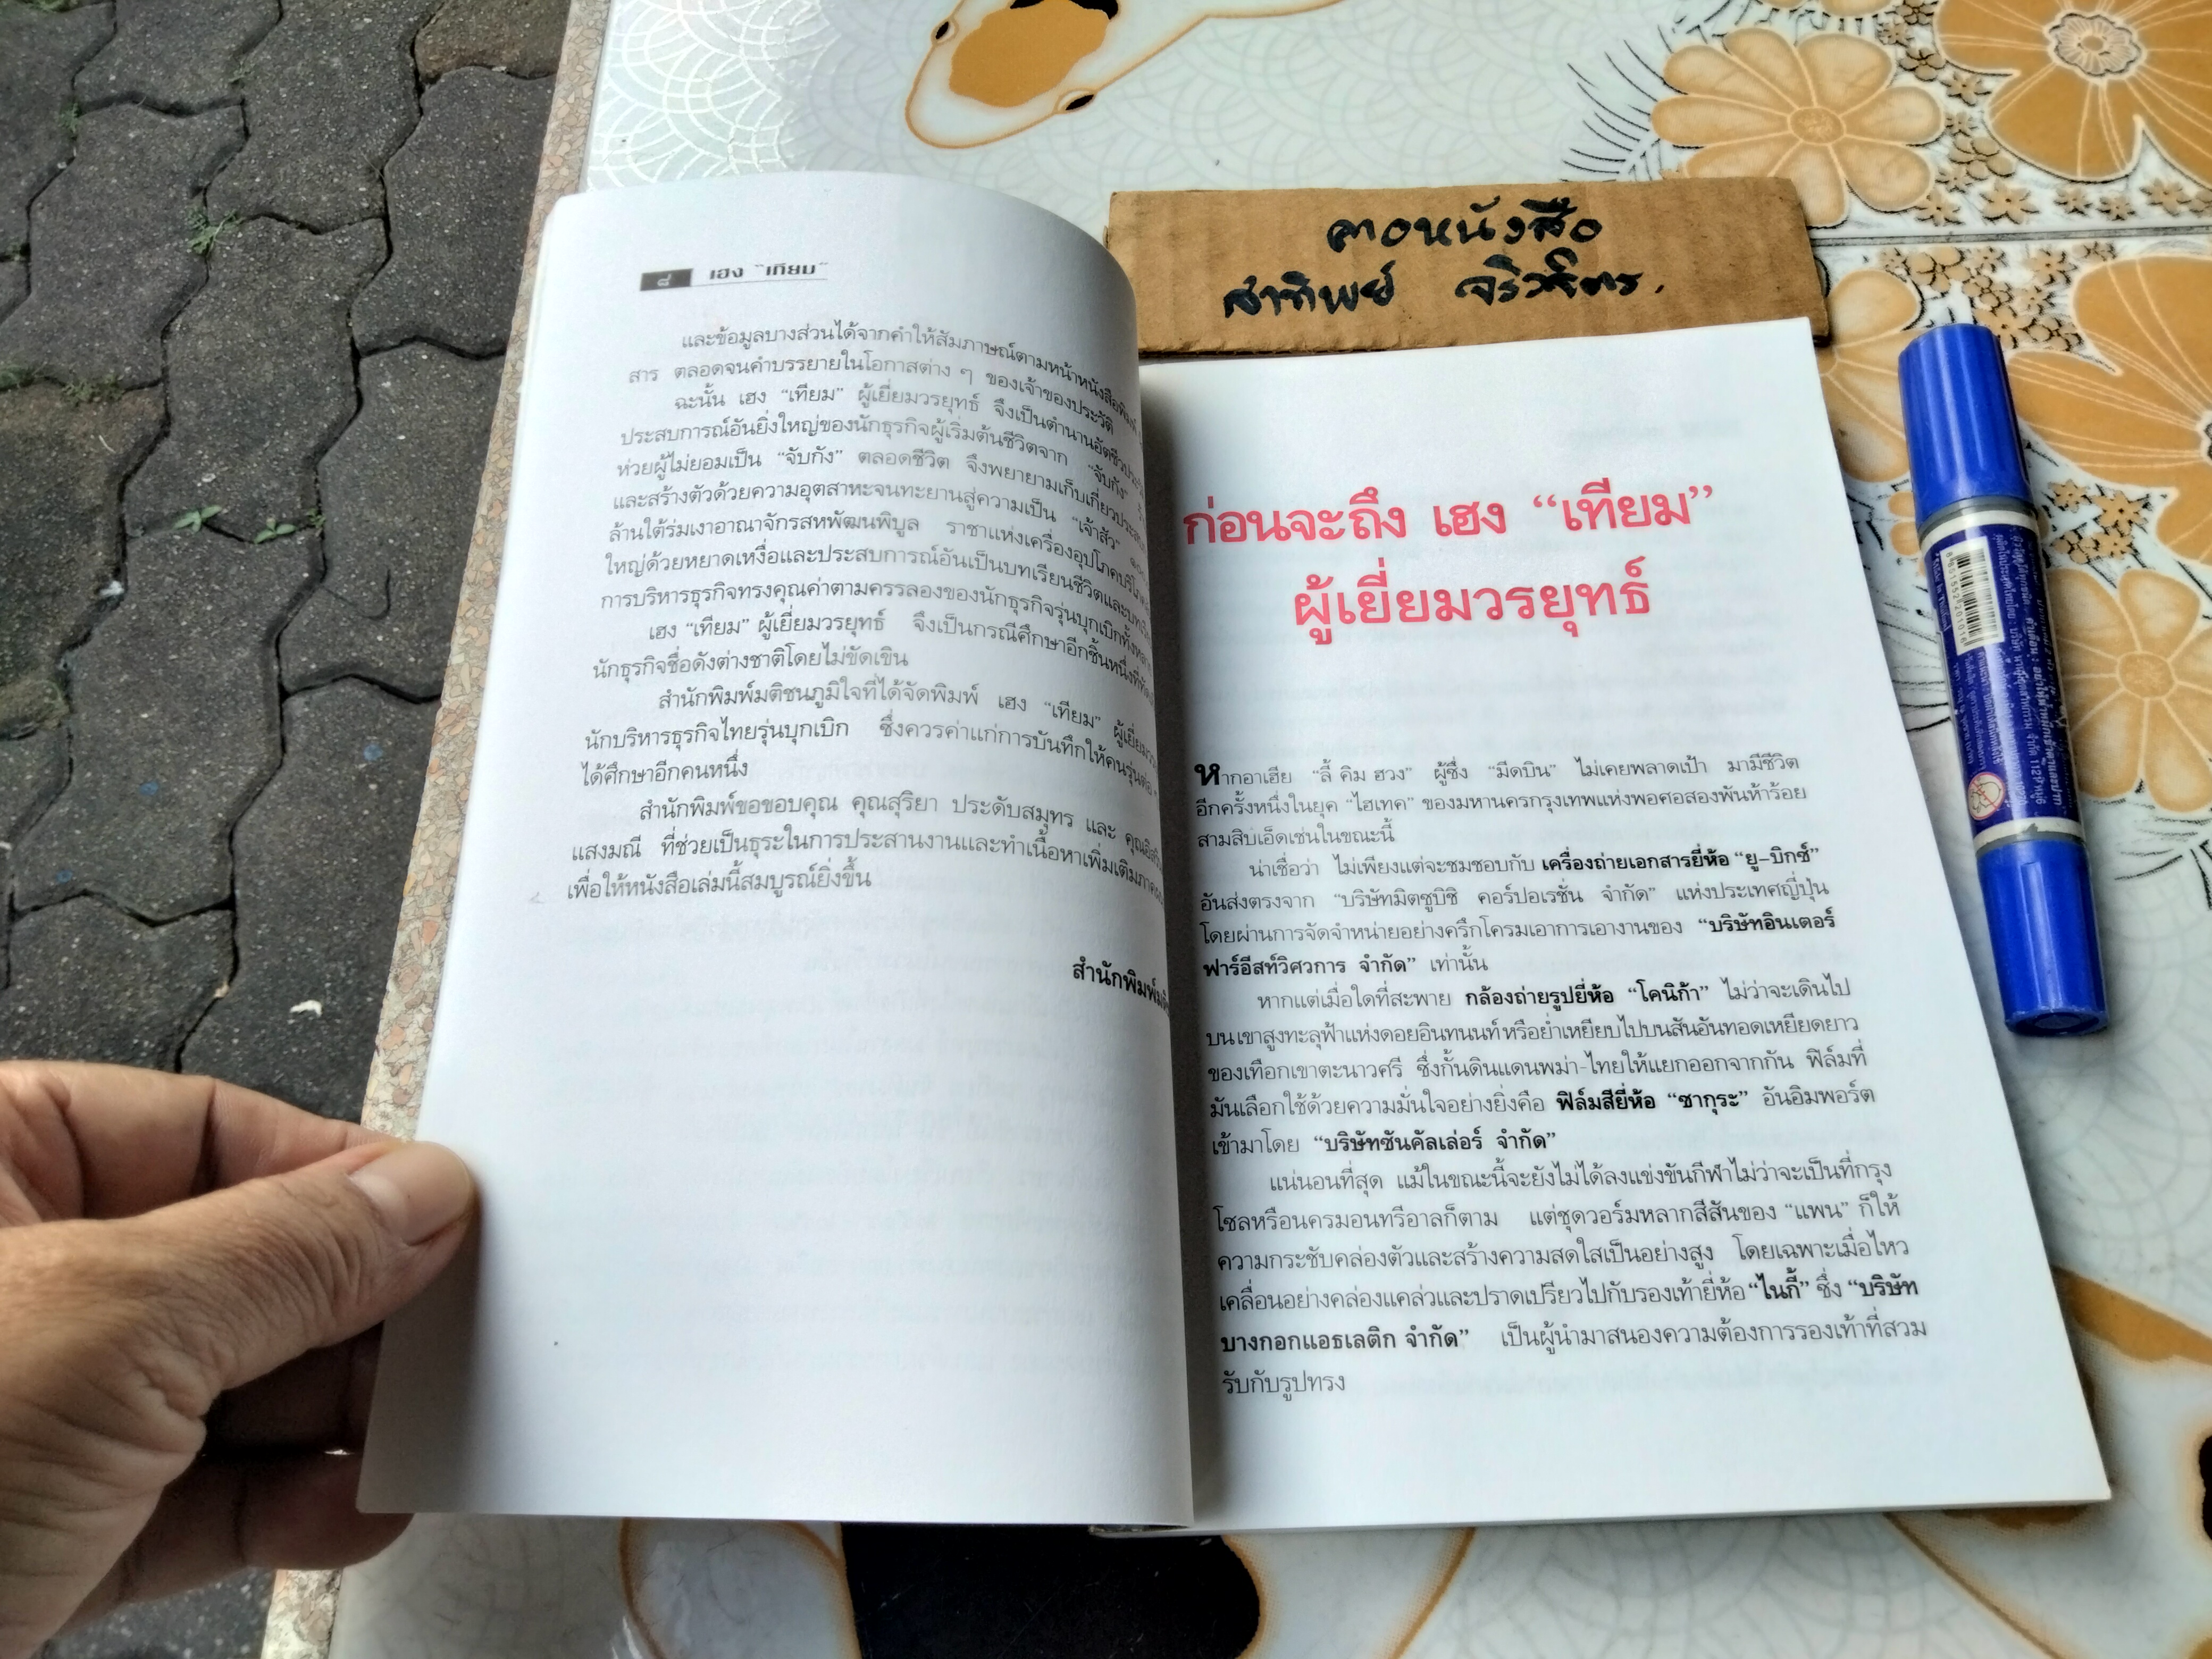 ตาอหนังสือ
สาทิพย์
๘ เฮง “เทียม”
และข้อมูลบางส่วนได้จากคำให้สัมภาษณ์ตามหน้าหนังสือพิมพ์
สาร ตลอดจนคำบรรยายในโอกาสต่าง ๆ ของเจ้าของประวัติ
ฉะนั้น เฮง “เทียม” ผู้เยี่ยมวรยุทธ์ จึงเป็นตำนานอัตชีวประวัติ
ประสบการณ์อันยิ่งใหญ่ของนักธุรกิจผู้เริ่มต้นชีวิตจาก “จับกัง”
ห่วยผู้ไม่ยอมเป็น “จับกัง” ตลอดชีวิต จึงพยายามเก็บเกี่ยวประสบการณ์
และสร้างตัวด้วยความอุตสาหะจนทะยานสู่ความเป็น “เจ้าสัว”
ล้านใต้ร่มเงาอาณาจักรสหพัฒนพิบูล ราชาแห่งเครื่องอุปโภคบริโภค
ใหญ่ด้วยหยาดเหงื่อและประสบการณ์อันเป็นบทเรียนชีวิตและบทเรียน
การบริหารธุรกิจทรงคุณค่าตามครรลองของนักธุรกิจรุ่นบุกเบิกทั้งหลาย
เฮง “เทียม” ผู้เยี่ยมวรยุทธ์ จึงเป็นกรณีศึกษาอีกชิ้นหนึ่งที่
นักธุรกิจชื่อดังต่างชาติโดยไม่ขัดเขิน
สำนักพิมพ์มติชนภูมิใจที่ได้จัดพิมพ์ เฮง “เทียม” ผู้เยี่ยมวร
นักบริหารธุรกิจไทยรุ่นบุกเบิก ซึ่งควรค่าแก่การบันทึกให้คนรุ่นต่อ
ได้ศึกษาอีกคนหนึ่ง
สำนักพิมพ์ขอขอบคุณ คุณสุริยา ประดับสมุทร และ
แสงมณี ที่ช่วยเป็นธุระในการประสานงานและทำเนื้อหาเพิ่มเติม
เพื่อให้หนังสือเล่มนี้สมบูรณ์ยิ่งขึ้น
สำนักพิมพ์มติ
ก่อนจะถึง เฮง “เทียม”
ผู้เยี่ยมวรยุทธ์
หากอาเฮีย “ลี้ คิม ฮวง” ผู้ซึ่ง “มีดบิน” ไม่เคยพลาดเป้า มามีชีวิต
อีกครั้งหนึ่งในยุค “ไฮเทค” ของมหานครกรุงเทพแห่งพอศอสองพันห้าร้อย
สามสิบเอ็ดเช่นในขณะนี้
น่าเชื่อว่า ไม่เพียงแต่จะชมชอบกับ เครื่องถ่ายเอกสารยี่ห้อ “ยู-บิกซ์”
อันส่งตรงจาก “บริษัทมิตซูบิชิ คอร์ปอเรชั่น จำกัด” แห่งประเทศญี่ปุ่น
โดยผ่านการจัดจำหน่ายอย่างครึกโครมเอาการเอางานของ “บริษัทอินเตอร์
ฟาร์อีสท์วิศวการ จำกัด” เท่านั้น
หากแต่เมื่อใดที่สะพาย กล้องถ่ายรูปยี่ห้อ “โคนิก้า” ไม่ว่าจะเดินไป
บนเขาสูงทะลุฟ้าแห่งดอยอินทนนท์หรือย่ำเหยียบไปบนสันอันทอดเหยียดยาว
ของเทือกเขาตะนาวศรี ซึ่งกั้นดินแดนพม่า-ไทยให้แยกออกจากกัน ฟิล์มที่
มันเลือกใช้ด้วยความมั่นใจอย่างยิ่งคือ ฟิล์มสียี่ห้อ “ซากุระ” อันอิมพอร์ต
เข้ามาโดย “บริษัทซันคัลเล่อร์ จำกัด”
แน่นอนที่สุด แม้ในขณะนี้จะยังไม่ได้ลงแข่งขันกีฬาไม่ว่าจะเป็นที่กรุง
โซลหรือนครมอนทรีอาลก็ตาม แต่ชุดวอร์มหลากสีสันของ “แพน” ก็ให้
ความกระชับคล่องตัวและสร้างความสดใสเป็นอย่างสูง โดยเฉพาะเมื่อไหว
เคลื่อนอย่างคล่องแคล่วและปราดเปรียวไปกับรองเท้ายี่ห้อ “ไนกี้” ซึ่ง “บริษัท
บางกอกแอธเลติก จำกัด” เป็นผู้นำมาสนองความต้องการรองเท้าที่สวม
รับกับรูปทรง